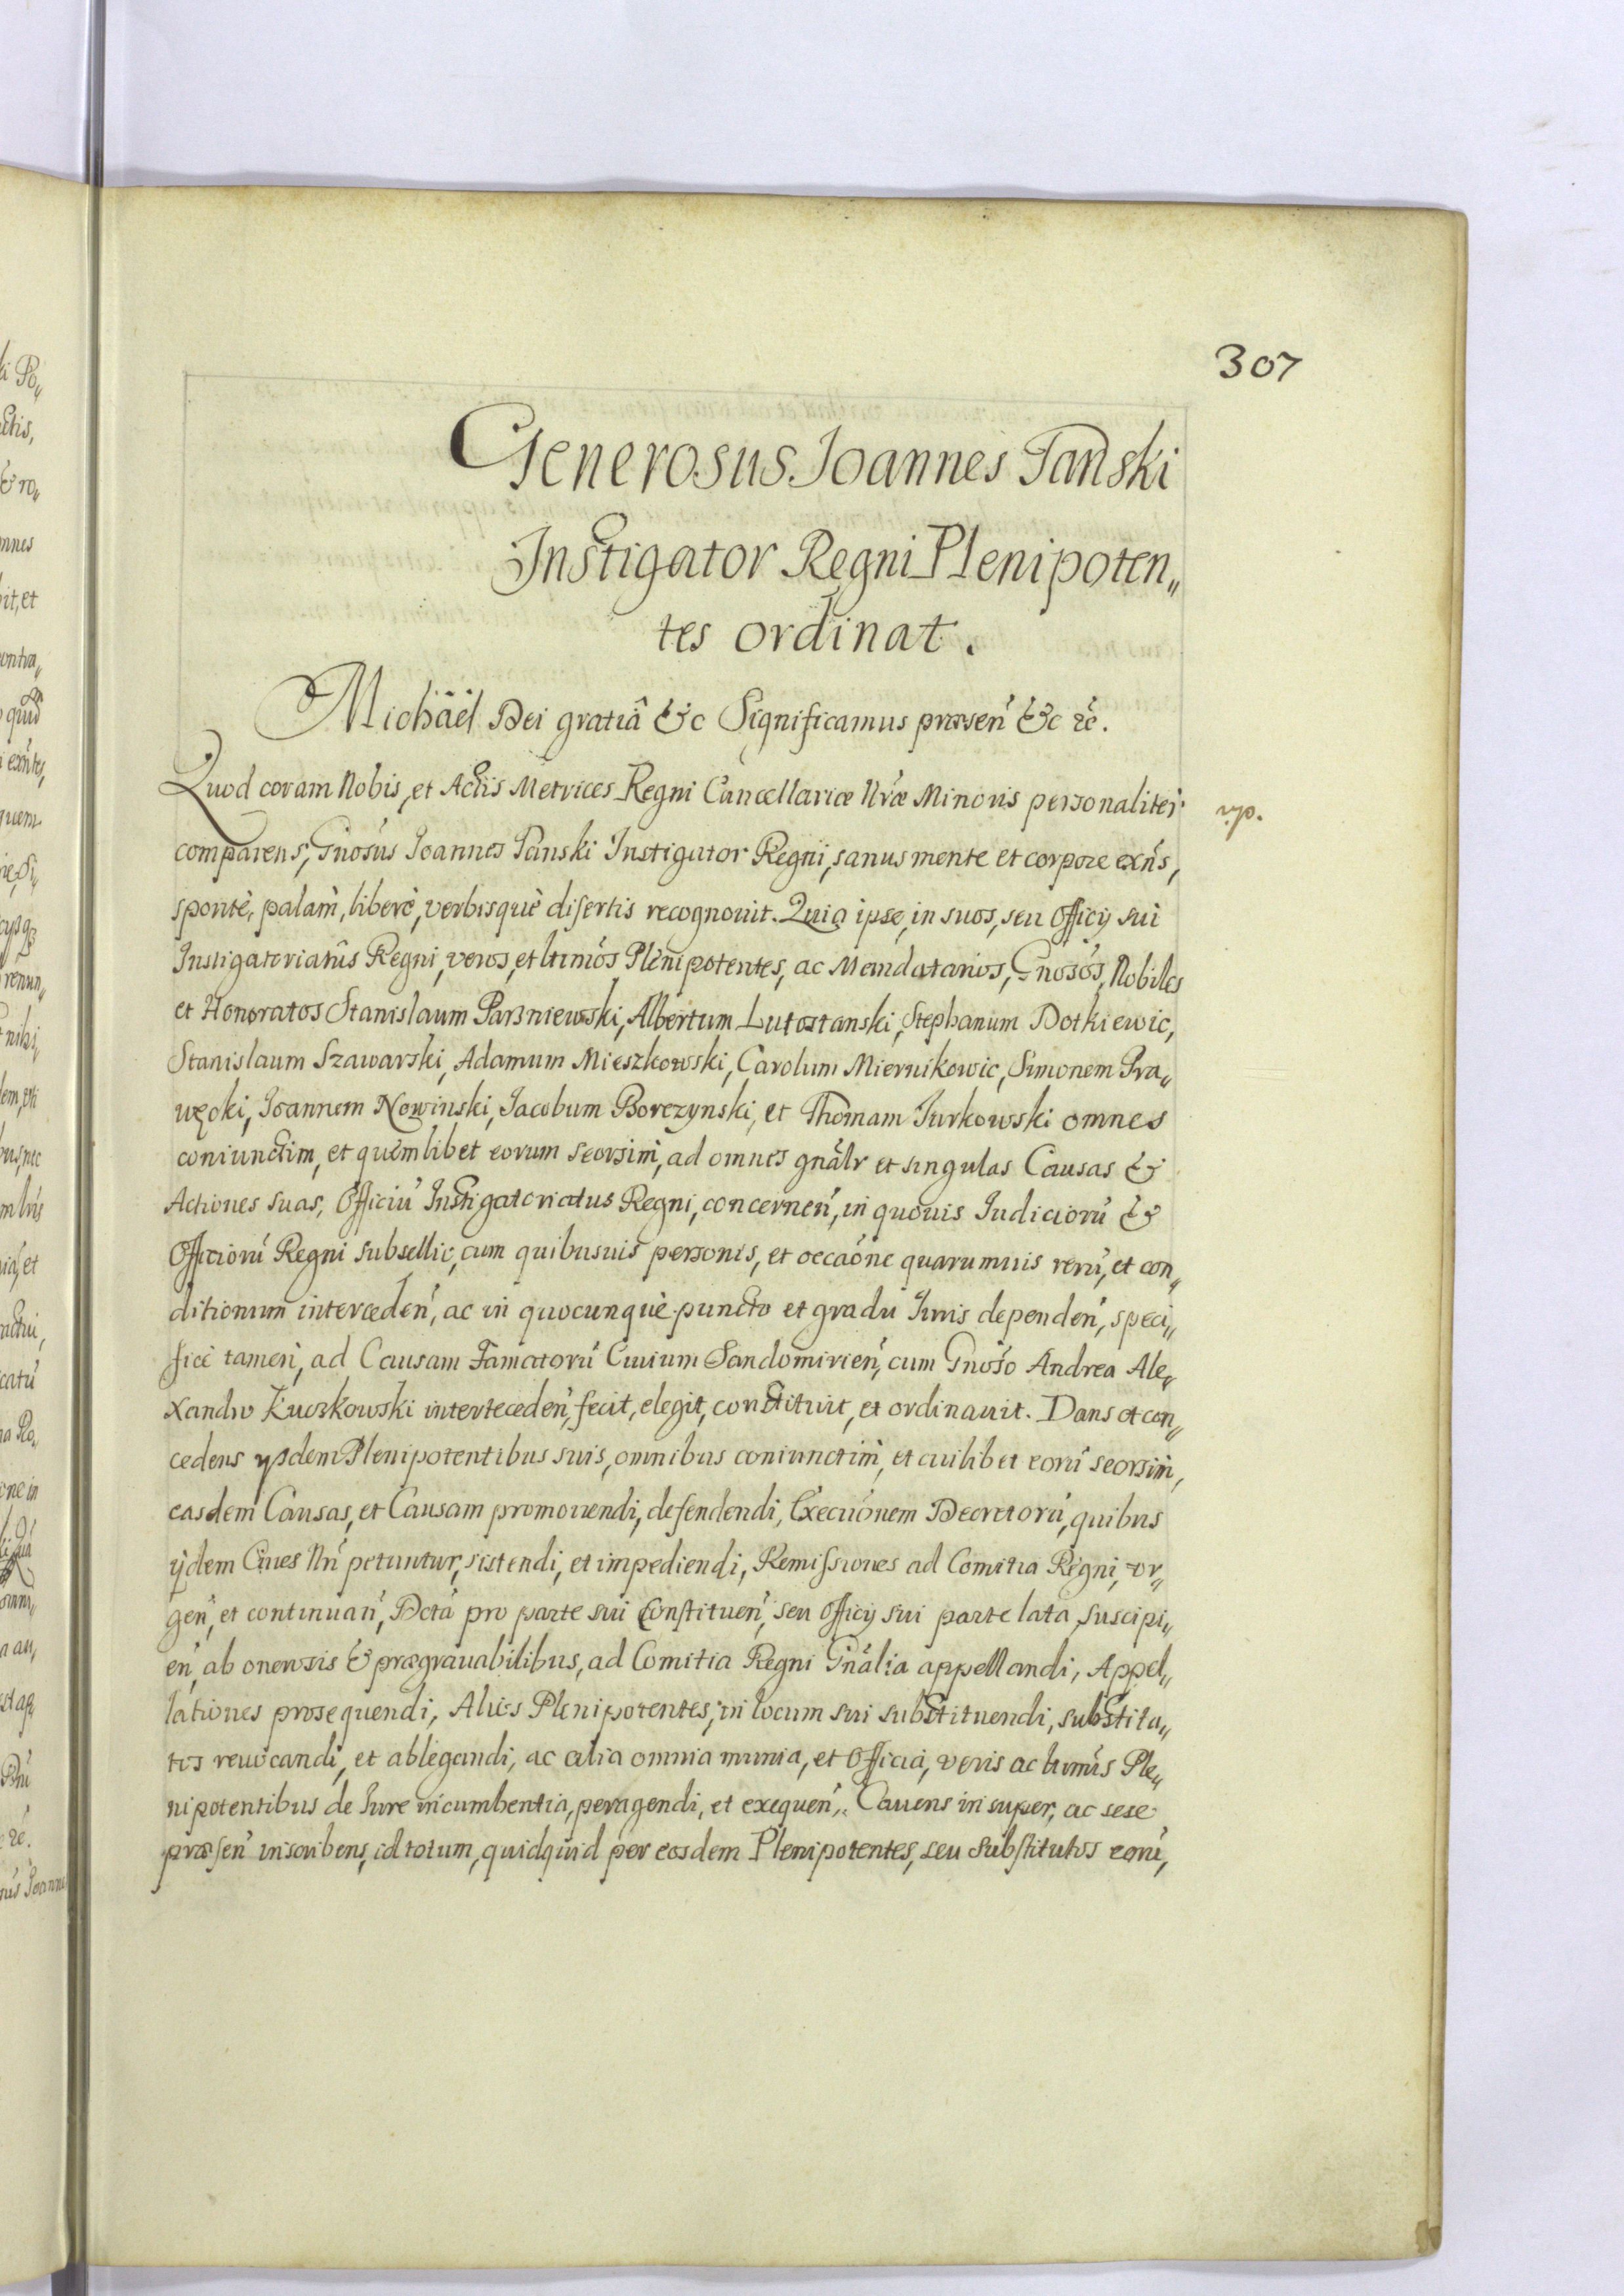 307
Generosus Joannes Tański
Instigator Regni Plenipoten„
tes ordinat.
Michäel Dei gratiâ &c Significamus præsen̄ &c &c.
Quod coram Nobis, et Actis Metrices Regni Cancellariæ Nr̄æ Minoris personaliter
comparens, Gnosus Joannes Tanski Instigator Regni, sanus mente et corpore exn̄s,
spontè, palam̀, liberè, verbisquè disertis recognouit. Quia ipse, in suos, seu Officij sui
Instigatoriatûs Regni, veros, et ltimós Plenipotentes, ac Mandatarios, Gnosós, Nobiles
et Honoratos Stanislaum Parzniewski, Albertum Lutostanski, Stephanum Dotkiewic,
Stanislaum Szawarski, Adamum Mieszkowski, Carolum Miernikowic, Simonem Pra„
węcki, Joannem Nowinski, Jacobum Borczynski, et Thomam Jurkowski omnes
coniunctim, et quemlibet eorum seorsim̀, ad omnes gnálr et singulas Causas &
Actiones suas, Officiú Instigatoriatus Regni, concernen̄, in quouis Judiciorú &
Officiorú Regni subsellio, cum quibusuis personis, et occaóne quarumuis rerú, et con„
ditionum interceden̄, ac in quocunquè puncto et gradu Iuris dependen̄, speci„
ficè tamen̄, ad Causam Famatorú Ciuium Sandomirien̄, cum Gnoso Andrea Ale„
xandro Kuczkowski interteceden̄, fecit, elegit, constituit, et ordinauit. Dans et con„
cedens ysdem Plenipotentibus suis, omnibus coniunctim̀, et cuilibet eorú seorsim̀,
easdem Causas, et Causam promouendi, defendendi, Execuónem Decretorú, quibus
ijdem Ciues Nri̇ petuntur, sistendi, et impediendi, Remissiones ad Comitia Regni, or„
gen̄, et continuan̄, Dcta pro parte sui Constituen̄, seu Officij sui parte lata, suscipi„
en̄, ab onerosis & prægrauabilibus, ad Comitia Regni Gnália appellandi, Appel„
lationes prosequendi, Alios Plenipotentes, in locum sui substituendi, substitu„
tos reuocandi, et ablegandi, ac alia omnia munia, et Officia, veris ac ltimis Ple„
nipotentibus de Iure incumbentia, peragendi, et exequen̄. Cauens insuper, ac sese
præsen̄ inscribens, id totum, quidquid per eosdem Plenipotentes, seu Substitutos eorú,